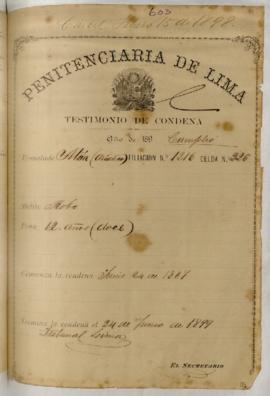 603
15 de 1898
PENITENCIARIA DE LIMA
TESTIMONIO DE CONDENA
Año de 189 Cumplió
Rematado FILIACION N.º 1216 CELDA N. 226
Delito Robo
Pena 12 años (doce)
Comienza la condena Junio 24 de 1887
Termina la condena el 24 de Junio de 1899
Tribunal
EL SECRETARIO